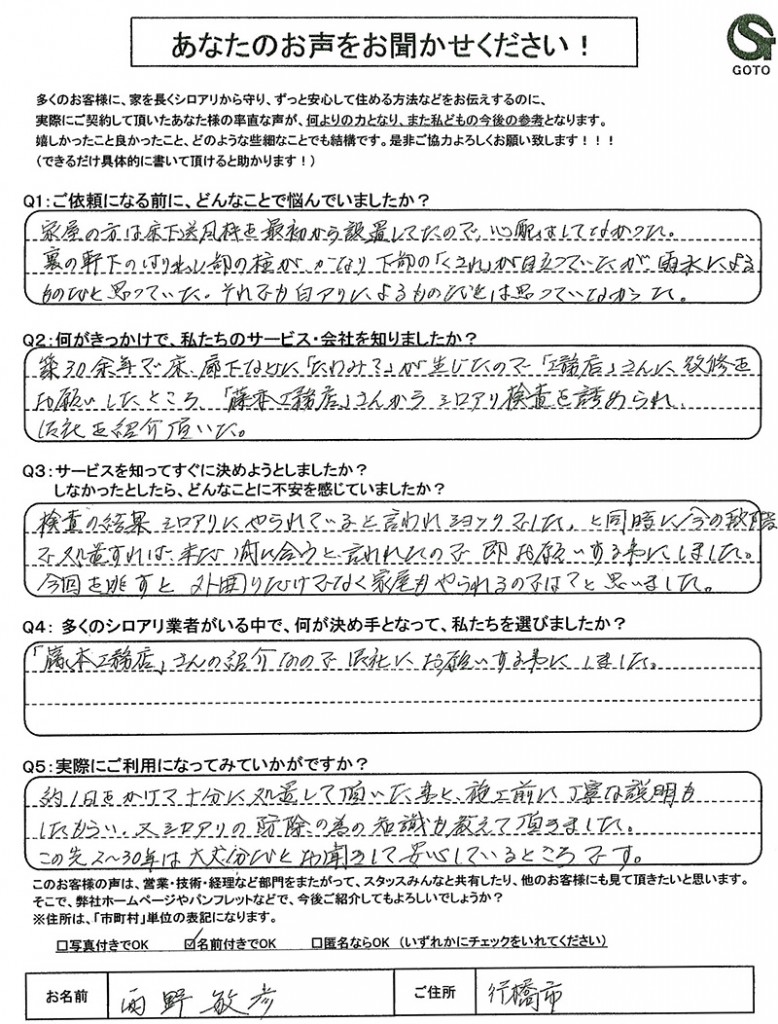 あなたのお声をお聞かせください！
GOTO
多くのお客様に、家を長くシロアリから守り、ずっと安心して住める方法などをお伝えするのに、
実際にご契約して頂いたあなた様の率直な声が、何よりの力となり、また私どもの今後の参考となります。
嬉しかったこと良かったこと、どのような些細なことでも結構です。是非ご協力よろしくお願い致します！！！
（できるだけ具体的に書いて頂けると助かります！）
Q1：ご依頼になる前に、どんなことで悩んでいましたか？
家屋の方は床下送風機を最初から設置してたので、心配はしてなかった。
裏の軒下のはり出し部の柱が、かなり下部の「くされ」が目立っていたが、雨水による
ものだと思っていた。それでも白アリによるものだとは思っていなかった。
Q2：何がきっかけで、私たちのサービス・会社を知りましたか？
築30余年で床、廊下などに「たわみ？」が生じたので「工務店」さんに改修を
お願いしたところ、「藤本工務店」さんからシロアリ検査を諮められ、
御社を紹介頂いた。
Q3：サービスを知ってすぐに決めようとしましたか？
しなかったとしたら、どんなことに不安を感じていましたか？
検査の結果シロアリにやられていると言われショックでした。と同時に今の
で処置すれば、まだ間に合うと言われたので即お願いする事にしました。
今回を逃すと外囲りだけでなく家屋もやられるのでは？と思いました。
Q4： 多くのシロアリ業者がいる中で、何が決め手となって、私たちを選びましたか？
「藤本工務店」さんの紹介なので御社にお願いする事にしました。
Q5：実際にご利用になってみていかがですか？
約1日をかけて十分に処置して頂いた事と、施工前に丁寧な説明も
してもらい、又シロアリの防除の為の知識も教えて頂きました。
この先2～30年は大丈夫だとお聞きして安心しているところです。
このお客様の声は、営業・技術・経理など部門をまたがって、スタッスみんなと共有したり、他のお客様にも見て頂きたいと思います。
そこで、弊社ホームページやパンフレットなどで、今後ご紹介してもよろしいでしょうか？
※住所は、「市町村」単位の表記になります。
□写真付きでOK ☑名前付きでOK □匿名ならOK （いずれかにチェックをいれてください）
お名前 雨野 敏彦 ご住所 行橋市